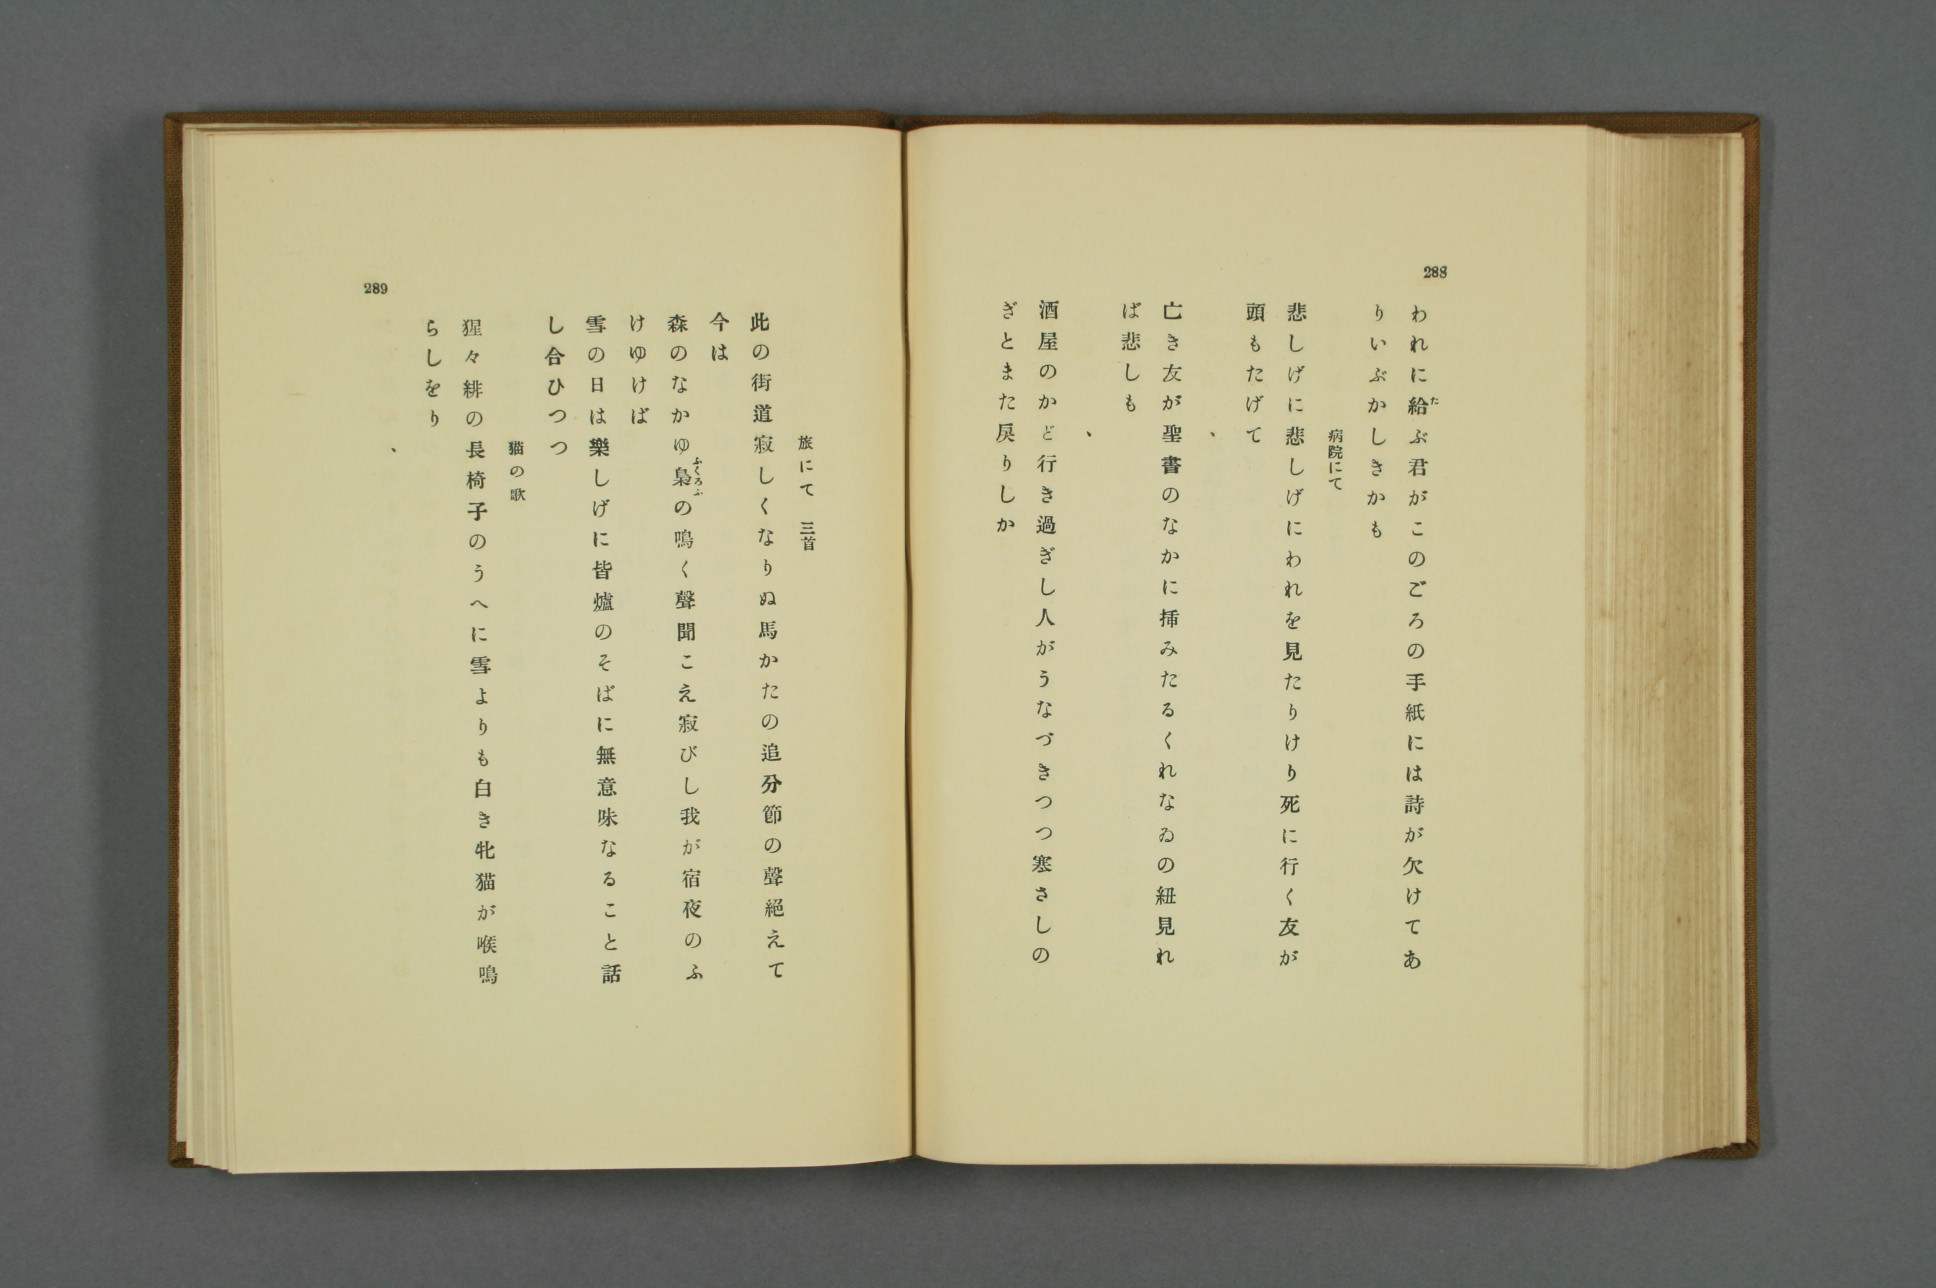 288
われに給ぶ君がこのごろの手紙には詩が欠けてあ
りいぶかしきかも
病院にて
悲しげに悲しげにわれを見たりけり死に行く友が
頭もたげて
、
亡き友が聖書のなかに挿みたるくれなゐの紐見れ
ば悲しも
、
酒屋のかど行き過ぎし人がうなづきつつ寒さしの
ぎとまた戻りしか
旅にて 三首
此の街道寂しくなりぬ馬かたの追分節の聲絕えて
今は
森のなかゆ梟の鳴く聲聞こえ寂びし我が宿夜のふ
けゆけば
雪の日は樂しげに皆爐のそばに無意味なること話
し合ひつつ
猫の歌
猩々緋の長椅子のうへに雪よりも白き牝猫が喉鳴
らしをり
、
289